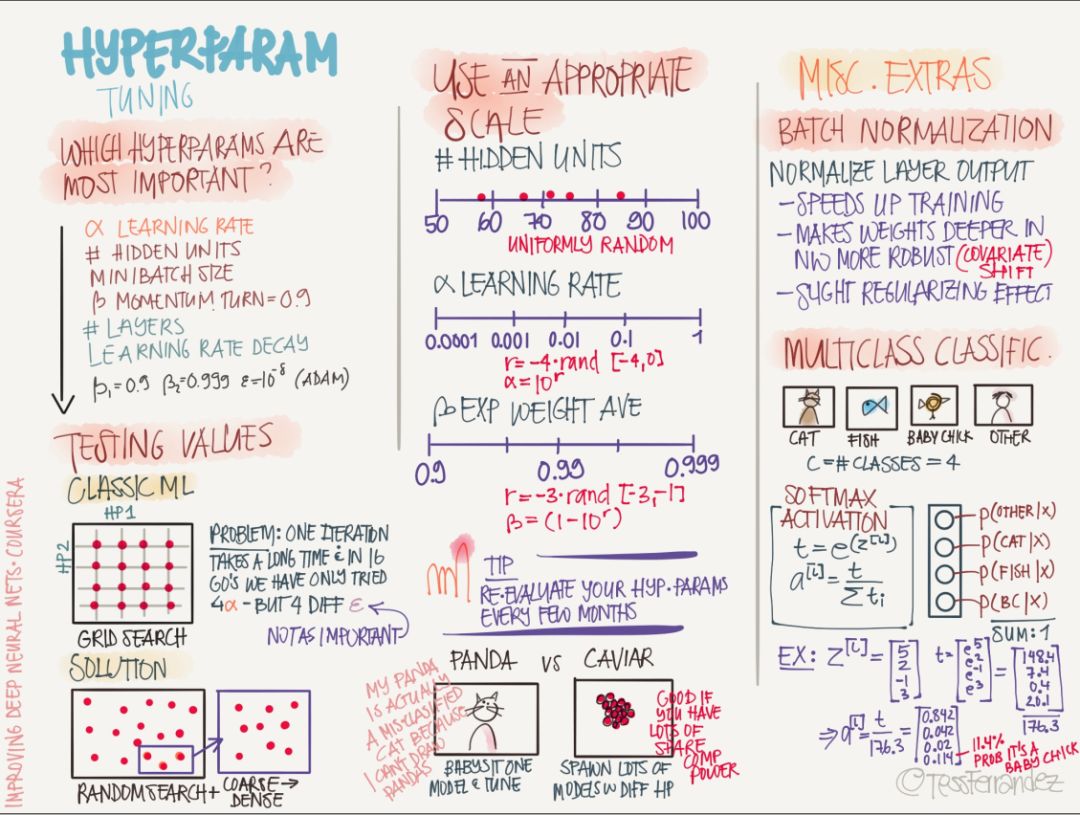 HYPERPARAM
TUNING
WHICH HYPERPARAMS ARE
MOST IMPORTANT?
α LEARNING RATE
# HIDDEN UNITS
MINIBATCH SIZE
β MOMENTUM TURN=0.9
# LAYERS
LEARNING RATE DECAY
β₁=0.9 β₂=0.999 ε=10⁻⁸ (ADAM)
TESTING VALUES
CLASSIC ML
HP1
HP2
GRID SEARCH
PROBLEM: ONE ITERATION
TAKES A LONG TIME & IN 16
GO'S WE HAVE ONLY TRIED
4α - BUT 4 DIFF ε
NOT AS IMPORTANT
SOLUTION
RANDOM SEARCH + COARSE →
DENSE
IMPROVING DEEP NEURAL NETS · COURSERA
USE AN APPROPRIATE
SCALE
# HIDDEN UNITS
50 60 70 80 90 100
UNIFORMLY RANDOM
α LEARNING RATE
0.0001 0.001 0.01 0.1 1
r=-4·rand [-4,0]
α=10ʳ
β EXP WEIGHT AVE
0.9 0.99 0.999
r=-3·rand [-3,-1]
β=(1-10ʳ)
TIP
RE-EVALUATE YOUR HYP.PARAMS
EVERY FEW MONTHS
PANDA VS CAVIAR
MY PANDA
IS ACTUALLY
A MISCLASSIFIED
CAT BECAUSE
I CAN'T DRAW
PANDAS
BABYSIT ONE
MODEL & TUNE
GOOD IF
YOU HAVE
LOTS OF
SHARE
COMP
POWER
SPAWN LOTS OF
MODELS W DIFF HP
MISC. EXTRAS
BATCH NORMALIZATION
NORMALIZE LAYER OUTPUT
- SPEEDS UP TRAINING
- MAKES WEIGHTS DEEPER IN
NW MORE ROBUST (COVARIATE)
SHIFT
- SLIGHT REGULARIZING EFFECT
MULTICLASS CLASSIFIC.
CAT FISH BABY CHICK OTHER
C=# CLASSES = 4
SOFTMAX
ACTIVATION
t=e^(z^[L])
a^[L]=t/∑tᵢ
P(OTHER|X)
P(CAT|X)
P(FISH|X)
P(BC|X)
SUM:1
EX: Z^[L]=[5 2 -1 3] t=[e⁵ e² e⁻¹ e³]=[148.4 7.4 0.4 20.1]
176.3
⇒a^[L]=t/176.3=[0.842 0.042 0.02 0.114]
11.4%
PROB IT'S A
BABY CHICK
@TessFerrandez